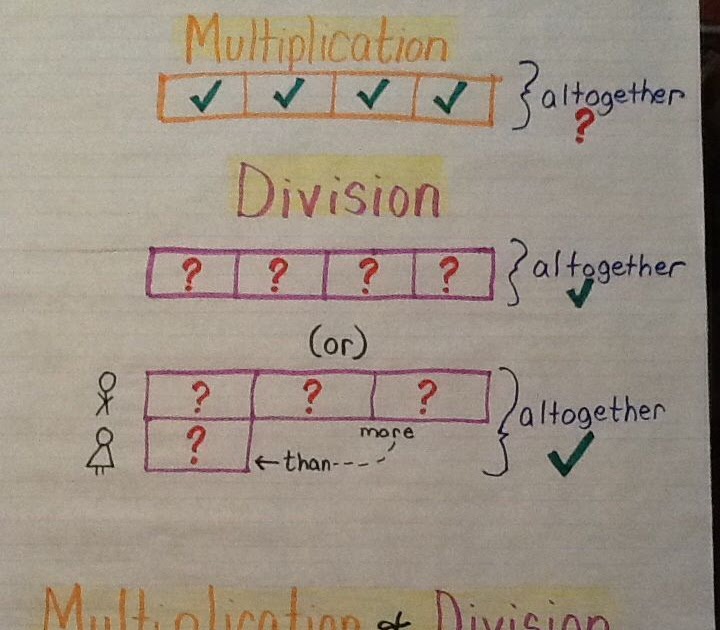 Multiplication
✓ ✓ ✓ ✓ } altogether
?
Division
? ? ? ? } altogether
✓
(or)
? ? ? } altogether
✓
more
? ← than---
Multiplication & Division